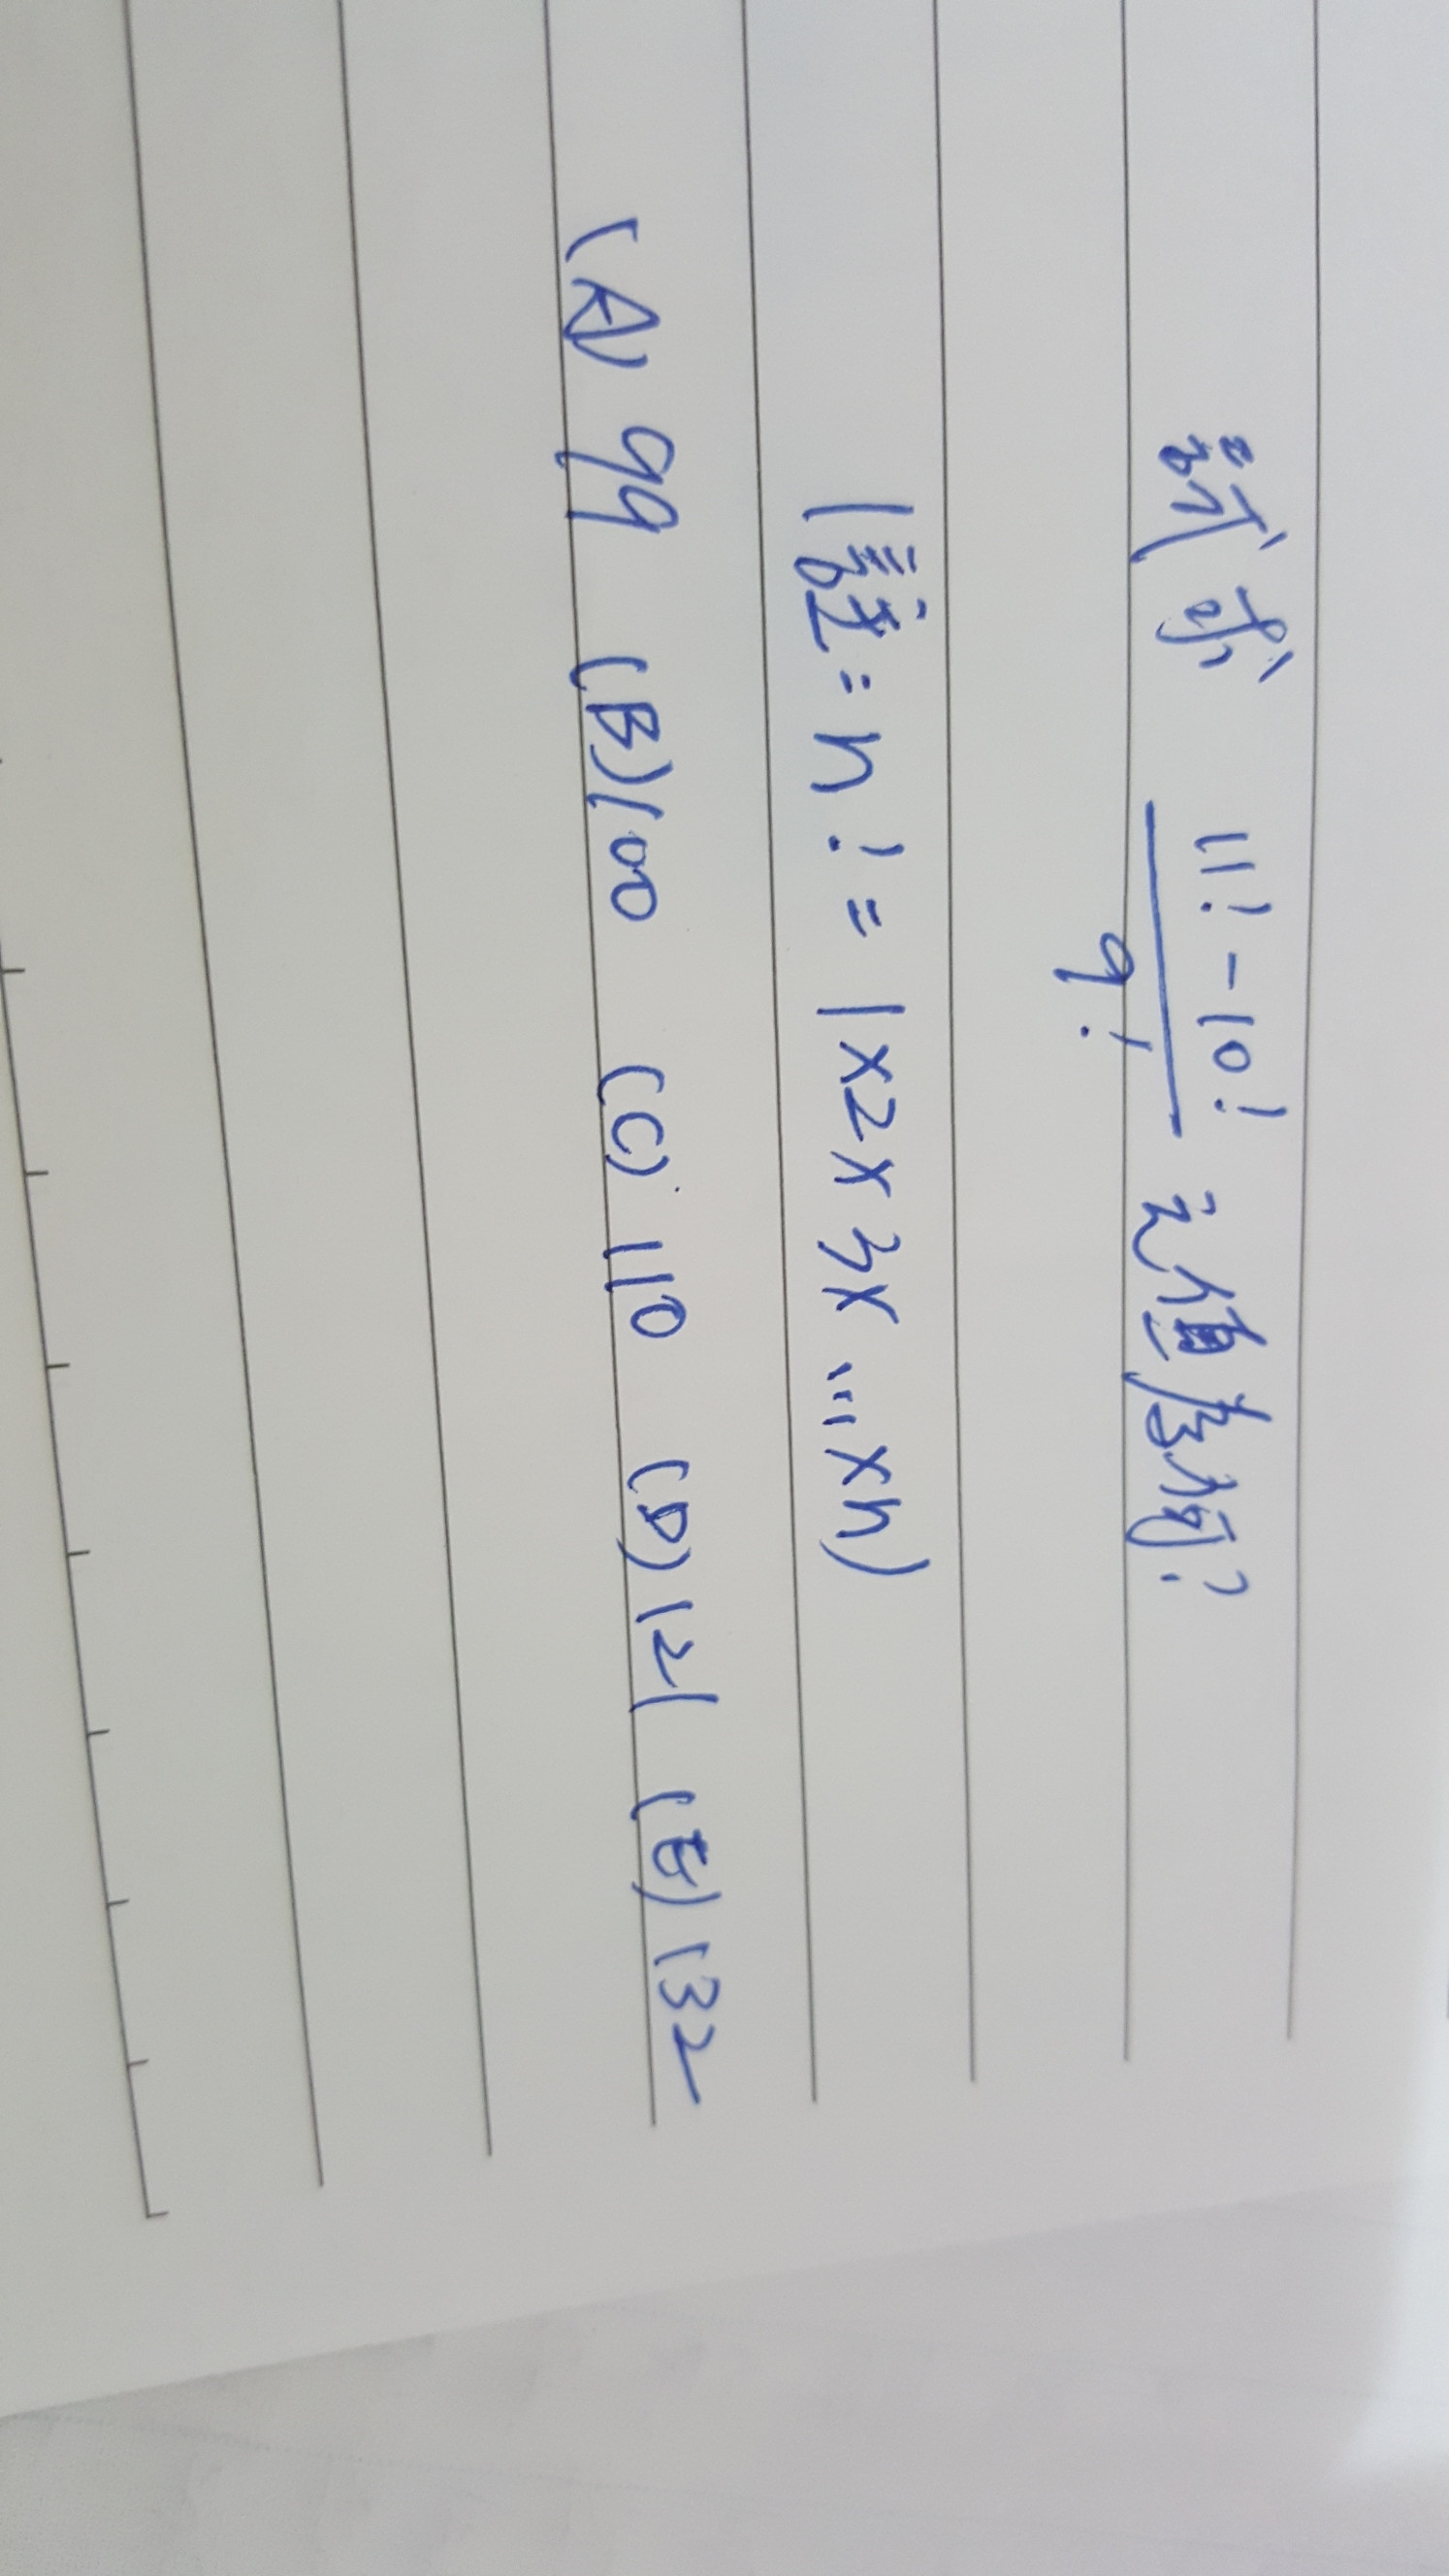 試求 11! - 10! / 9! 之值為何?
(註: n! = 1x2x3x...xn)
(A) 99 (B) 100 (C) 110 (D) 121 (E) 132